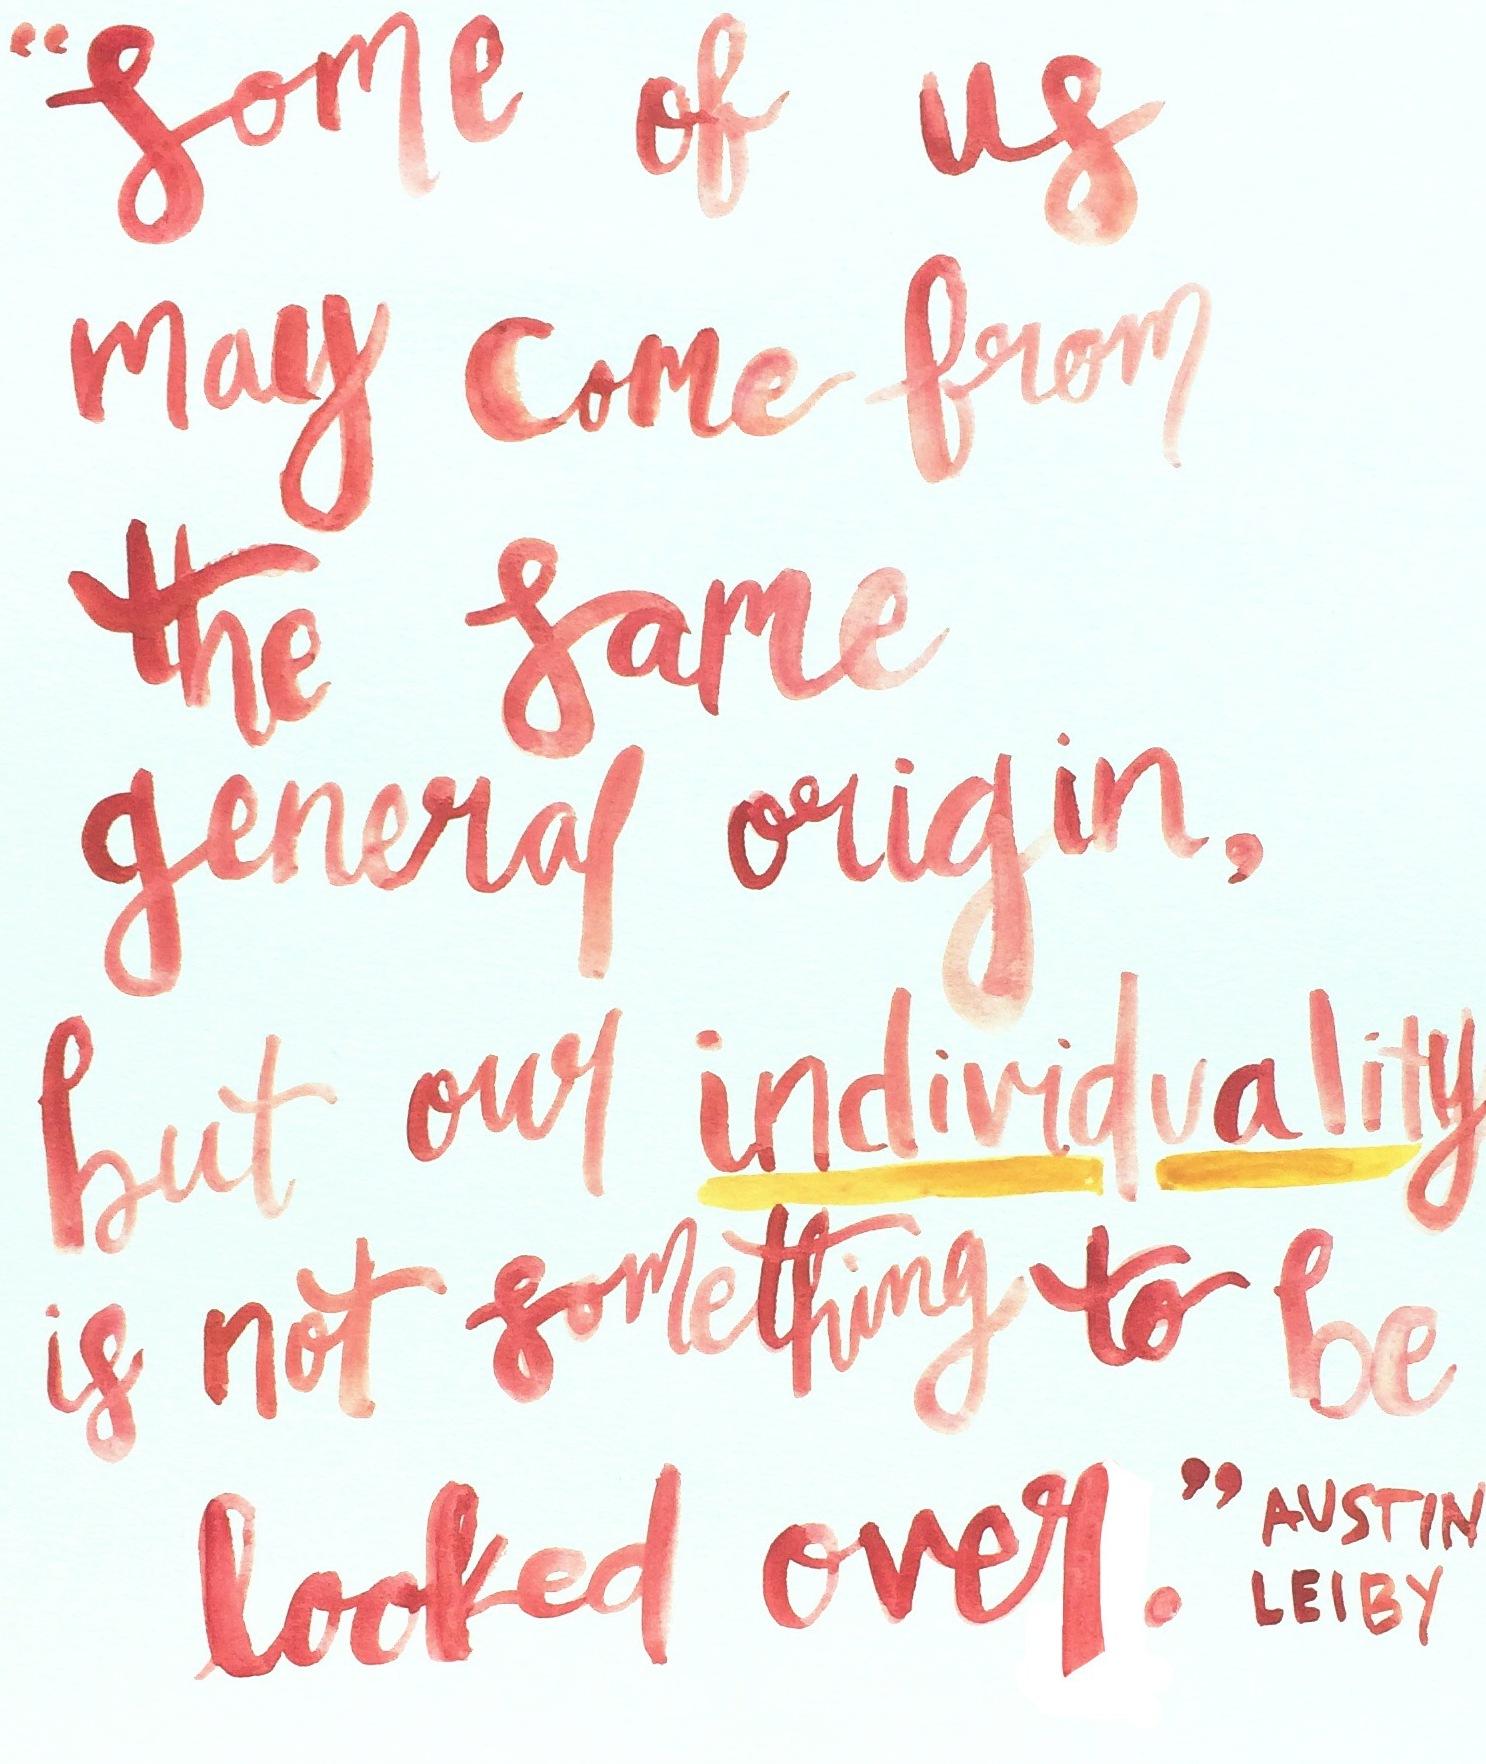 “some of us
may come from
the same
general origin,
but our individuality
is not something to be
looked over.” AUSTIN
LEIBY